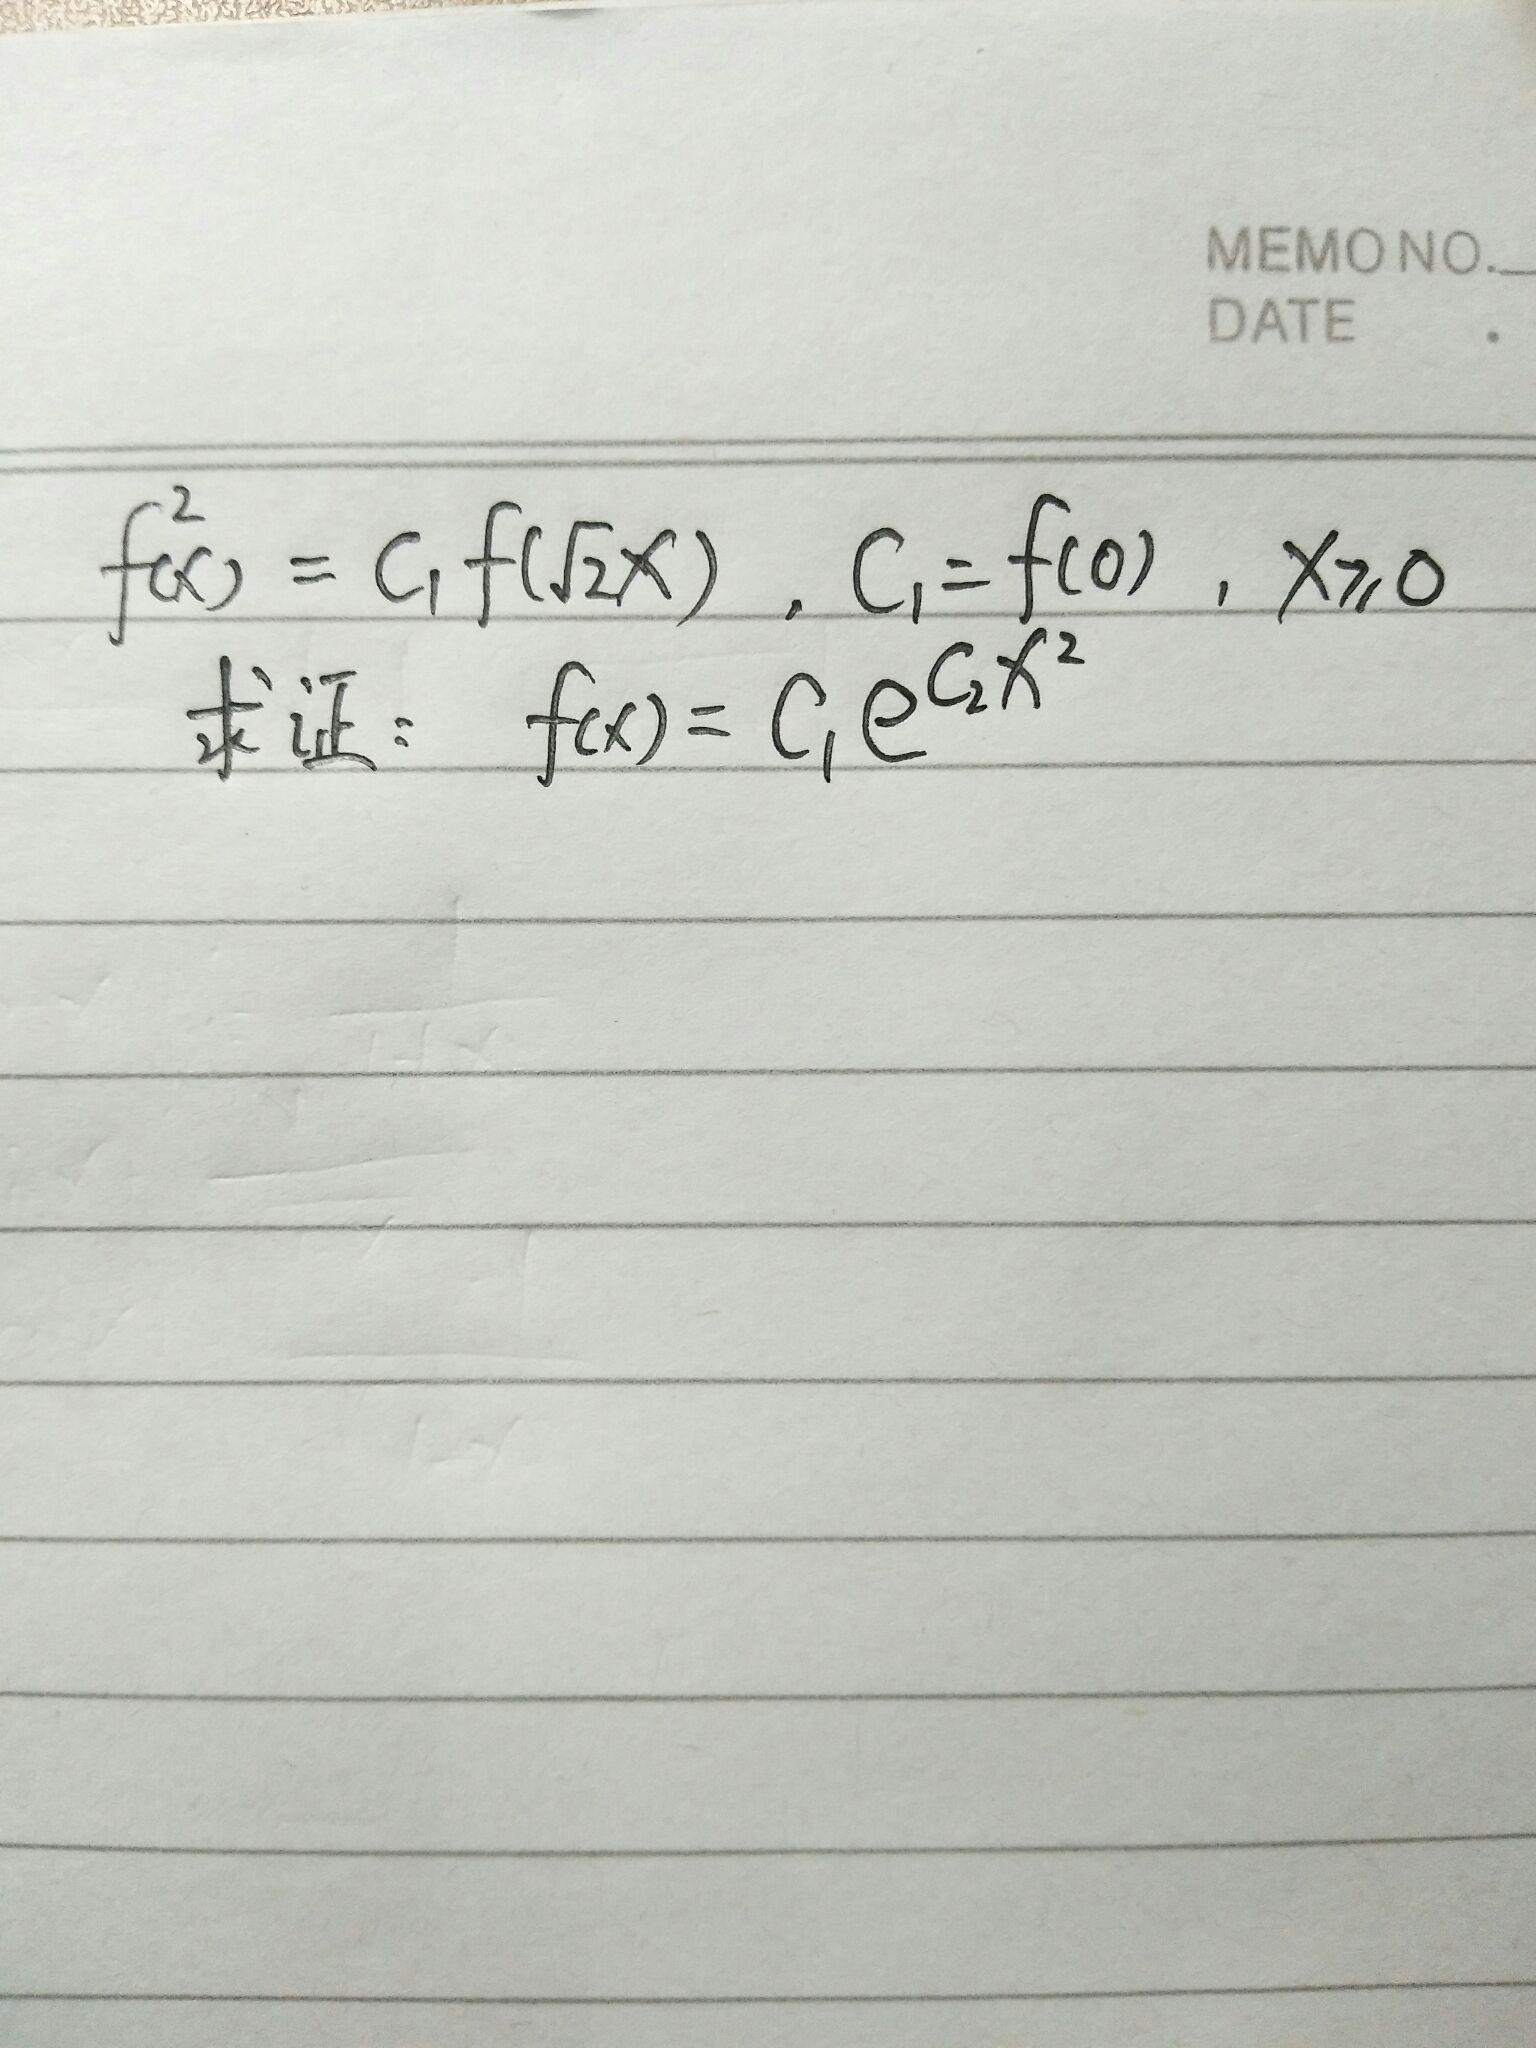 MEMO NO.
DATE .
f²(x) = C₁f(√2x), C₁=f(0), x≥0
求证: f(x) = C₁e^{C₂x²}